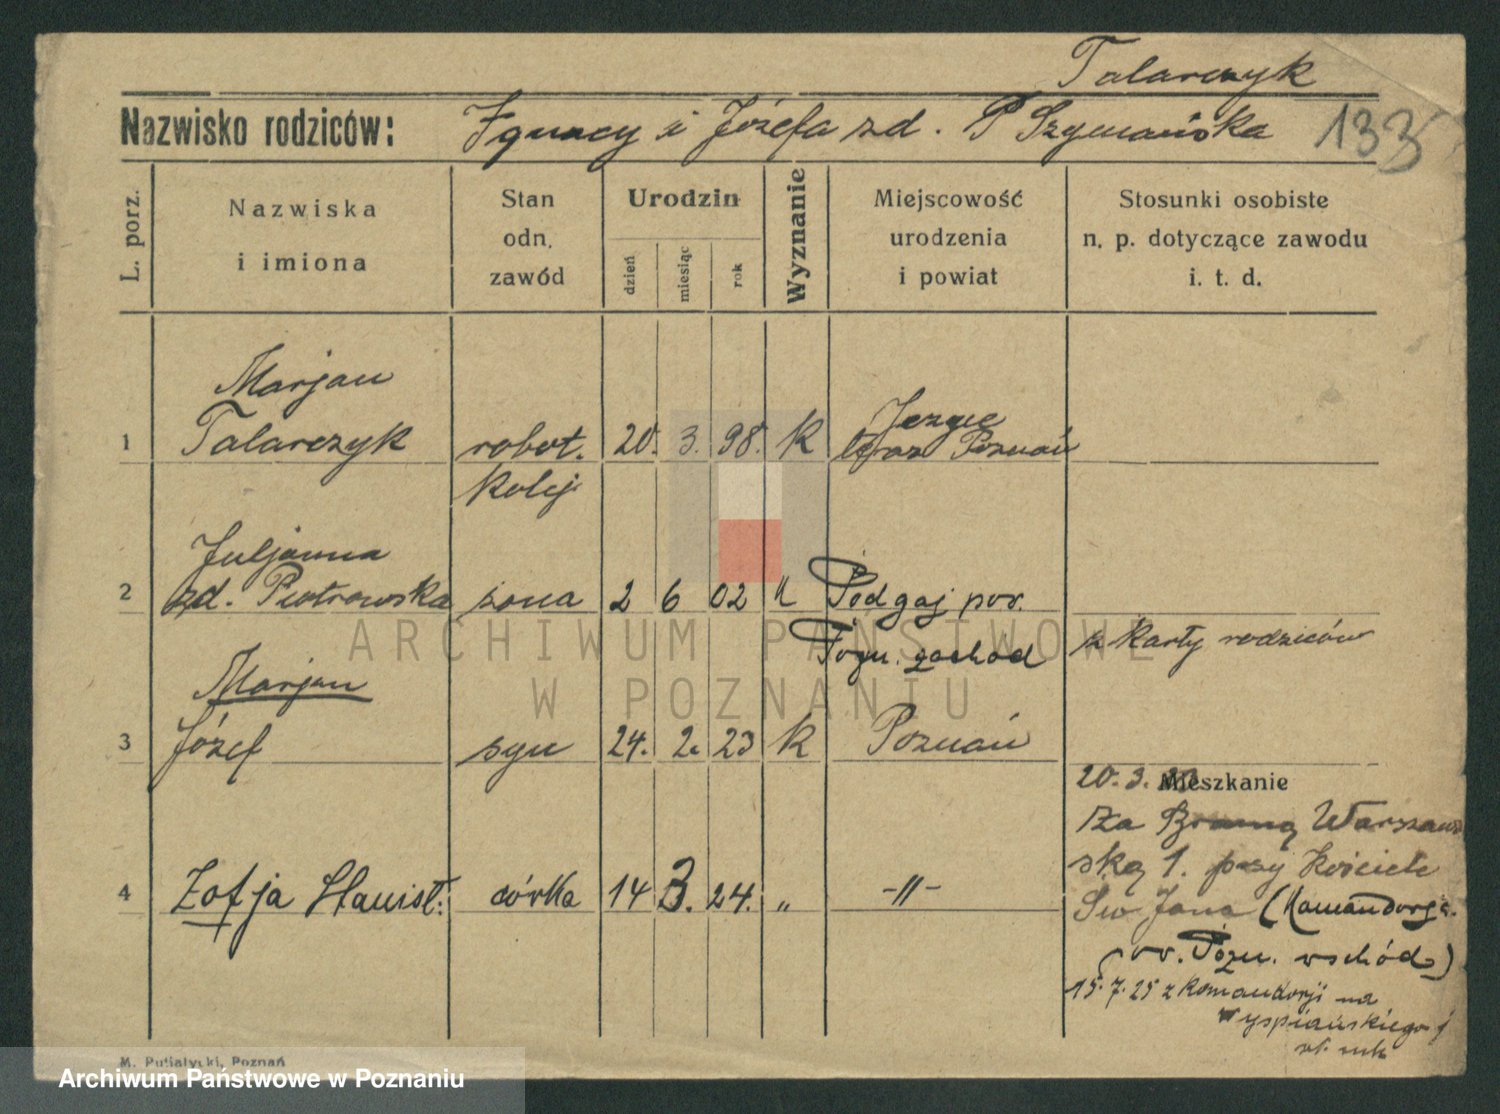 Talarczyk
Nazwisko rodziców: Ignacy i Józefa zd. Szymańska 133
L. porz.
Nazwiska i imiona
Stan odn. zawód
Urodzin
dzień miesiąc rok
Wyznanie
Miejscowość urodzenia i powiat
Stosunki osobiste n. p. dotyczące zawodu i. t. d.
Marjan
1 Talarczyk robot. 20. 3. 98. K Jezyce teraz Poznań
kolej
Juljanna
2 zd. Piotrowska żona 2 6 02 " Podgaj pow.
Pozn. zachód
z karty rodziców
Marjan
3 Józef syn 24. 2. 23 K Poznań
20. 3. Mieszkanie
Za Bramą Warszaw
ską 1. przy Kościele
4 Zofja Stanisł: córka 14 3. 24. " -"-
Św Jana (Komandorja.
pow. Pozn. wschód)
15.7.25 z Komandorji na
Wyspiańskiego
M. Putiatycki, Poznań
ARCHIWUM PAŃSTWOWE
W POZNANIU
Archiwum Państwowe w Poznaniu